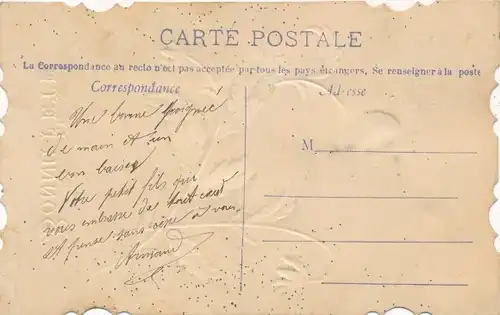 CARTE POSTALE
La Correspondance au recto n'est pas acceptée par tous les pays étrangers, Se renseigner à la poste
Correspondance
Adresse
Une bonne Poignée
de main et un
bon baiser
Votre petit fils qui
vous embrasse de tout cœur
et pense sans cesse à vous
Armand
M